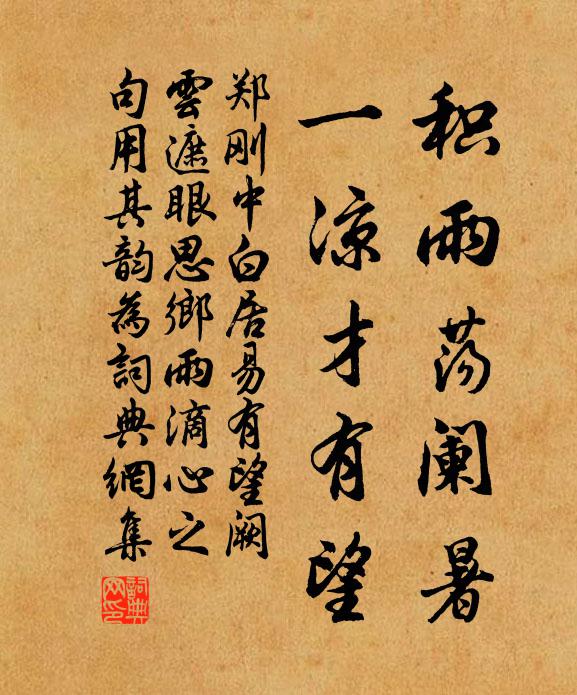 积雨荡阑暑
一凉才有望
郑刚中白居易有望阙
雲遮眼思鄉雨滴心之
句用其韵為詞典網集
詞典网印